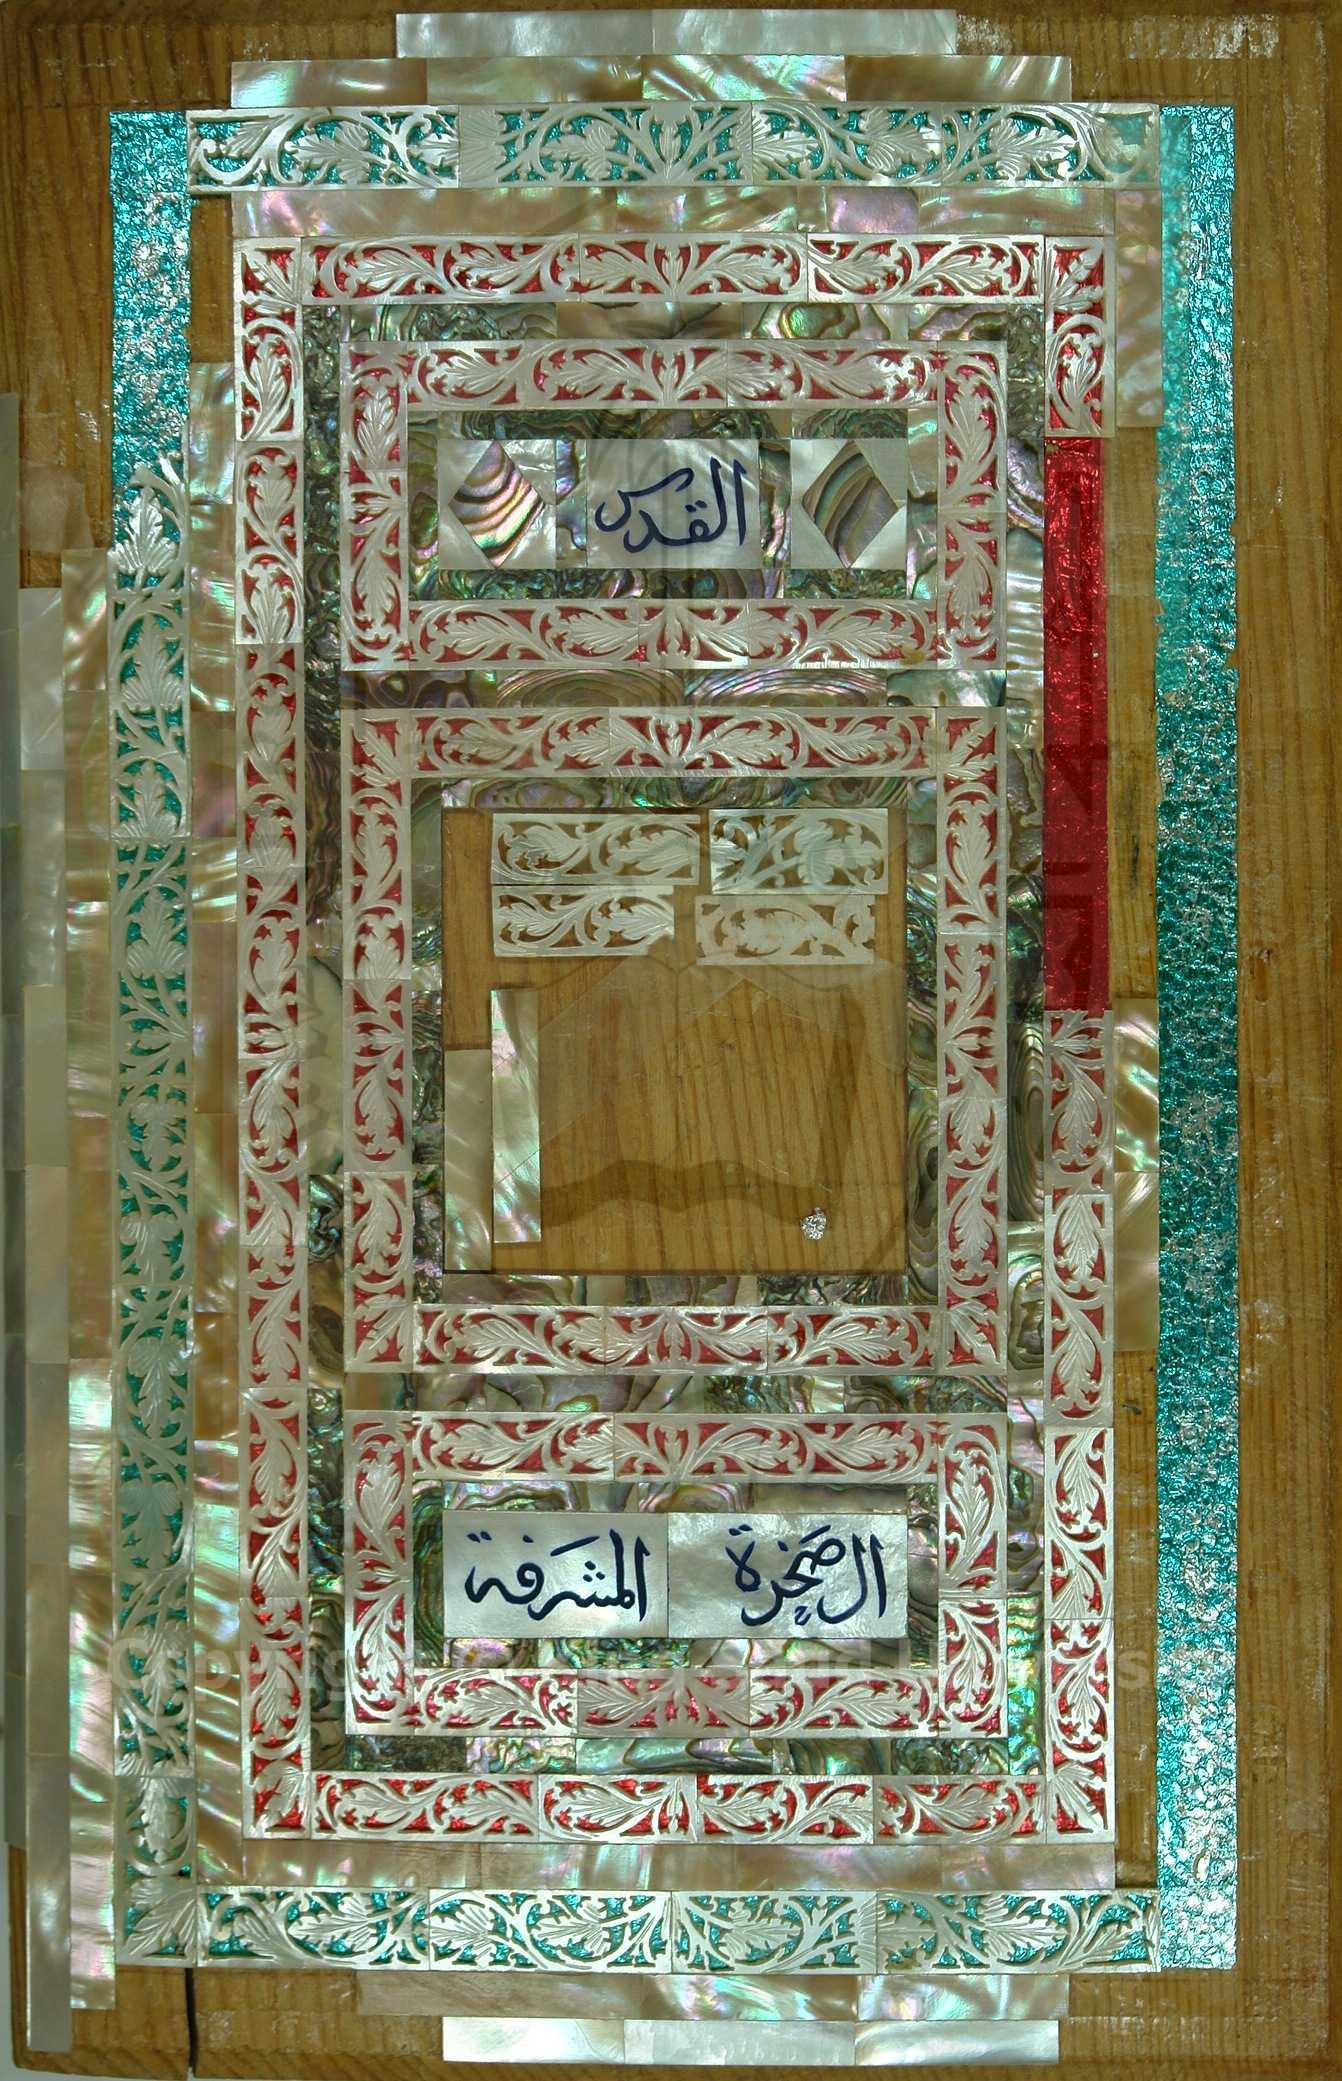 القدس
الصخرة المشرفة
Copyright